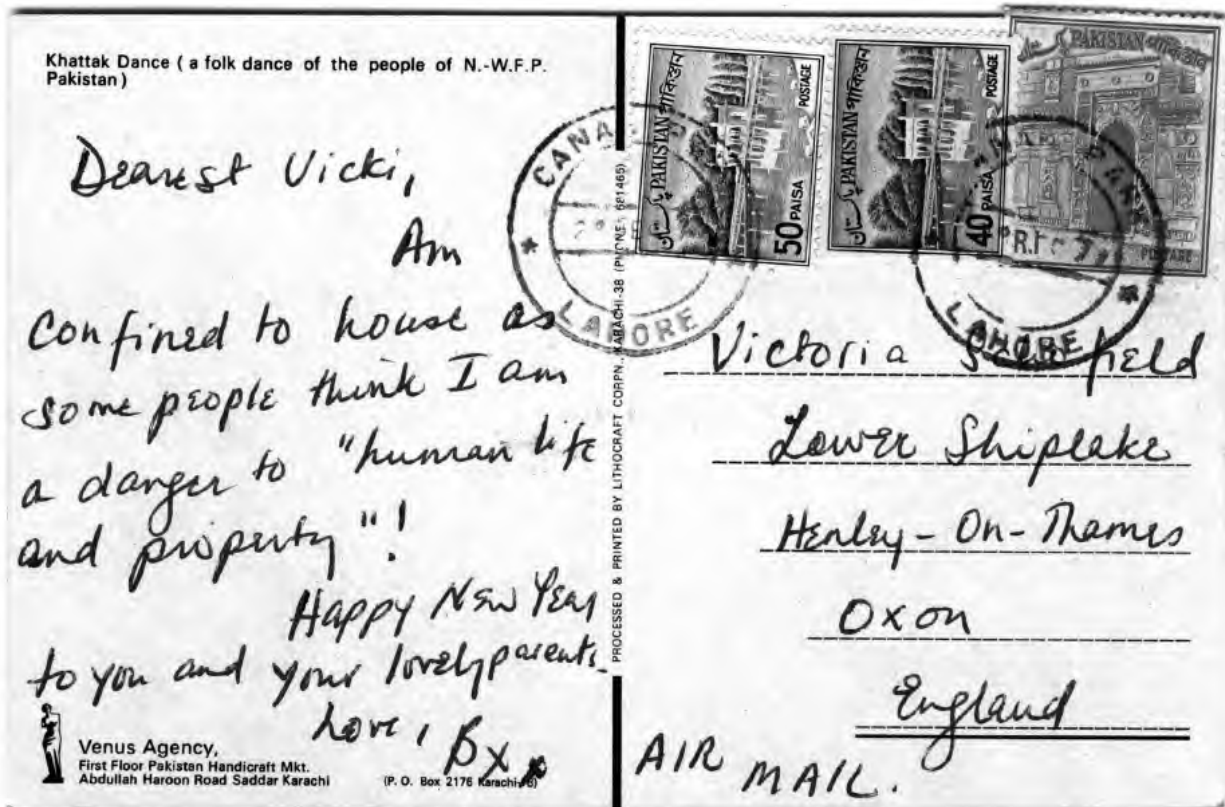 Khattak Dance ( a folk dance of the people of N.-W.F.P.
Pakistan )
Dearest Vicki,
Am
confined to house as
some people think I am
a danger to "human life
and property"!
Happy New Year
to you and your lovely parents.
Love, Bxx
Venus Agency,
First Floor Pakistan Handicraft Mkt.
Abdullah Haroon Road Saddar Karachi
(P. O. Box 2176 Karachi-
PROCESSED & PRINTED BY LITHOCRAFT CORPN., KARACHI-38 (PHONE: 681465)
پاکستان PAKISTAN পাকিস্তান
50 PAISA
POSTAGE
پاکستان PAKISTAN পাকিস্তান
40 PAISA
POSTAGE
پاکستان PAKISTAN পাকিস্তান
POSTAGE
LAHORE
LAHORE
Victoria Schofield
Lower Shiplake
Henley-On-Thames
Oxon
England
AIR MAIL.